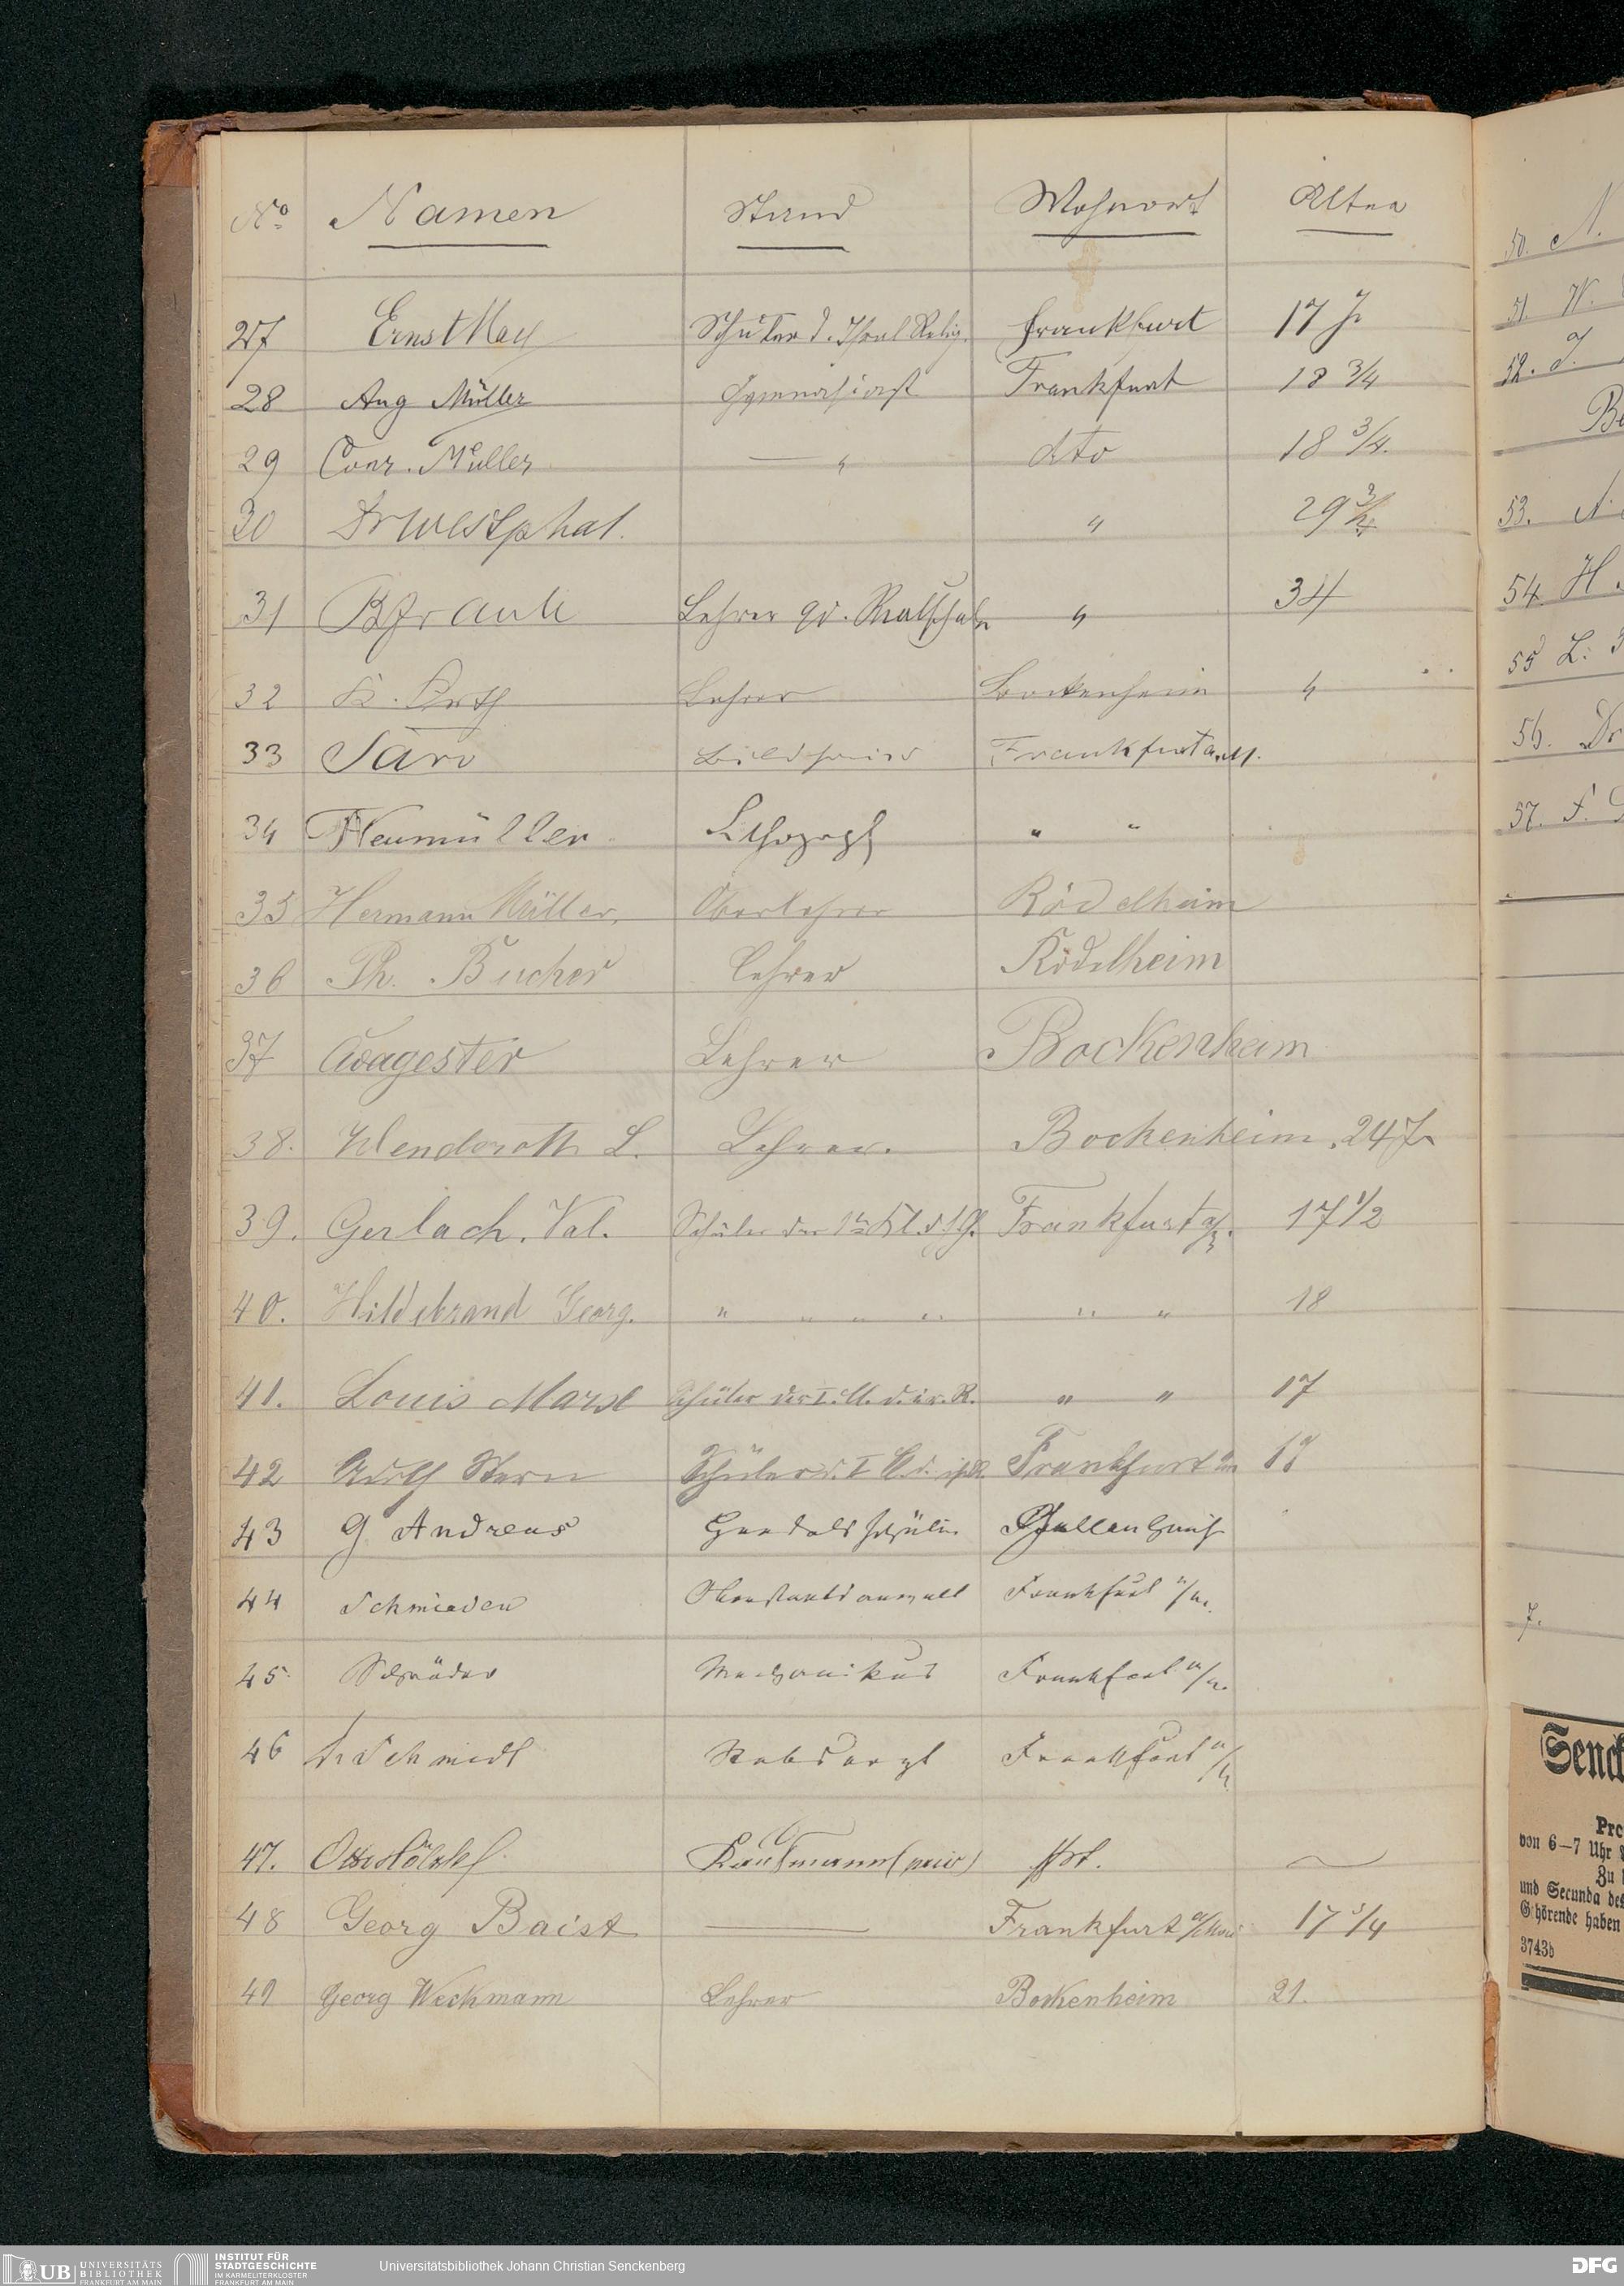 No Namen Stand Wohnort Alter
27 Ernst May Schüler d. Isrl. Relig. Frankfurt 17 J.
28 Aug Müller Gymnasiast Frankfurt 18 3/4
29 Conr. Müller — " dto 18 3/4.
30 Dr Westphal. " 29 3/4
31 B Frank Lehrer a. d. Realschule " 34
32 Lehrer Bockenheim "
33 Bildhauer Frankfurt a. M.
34 Neumüller Lithograph " "
35 Hermann Müller. Oberlehrer Rödelheim
36 Ph. Bücher Lehrer Rödelheim
37 Lehrer Bockenheim
38. Wenderoth L. Lehrer. Bockenheim. 24 J.
39. Gerlach. Val. Schüler der Frankfurt a/M. 17 1/2
40. Hildebrand Georg. " " " " " " 18
41. Louis Marx Schüler der I. Kl. d. isr. R. " " 17
42 Adolf Stern Schüler d. I Kl. d. isr. R. Frankfurt a/m
43 G. Andreas Handelsschüler
44 Schmieden Oberstaatsanwalt Frankfurt a/M.
45. Schräder Mechanikus Frankfurt a/M.
46 Schmidt Stabsarzt Frankfurt a/M.
47. Otto Kaufmann Ffrt.
48 Georg Baist — Frankfurt a/Main 17 3/4
49 Georg Weckmann Lehrer Bockenheim 21.
50. N.
51. W.
52. J.
53.
54 H.
55 L.
56. Dr
57. F.
7.
Senck
Pro
von 6—7 Uhr
Zu
und Secunda des
Gehörende haben
3743b
UB UNIVERSITÄTS
BIBLIOTHEK
FRANKFURT AM MAIN
INSTITUT FÜR
STADTGESCHICHTE
IM KARMELITERKLOSTER
FRANKFURT AM MAIN
Universitätsbibliothek Johann Christian Senckenberg
DFG